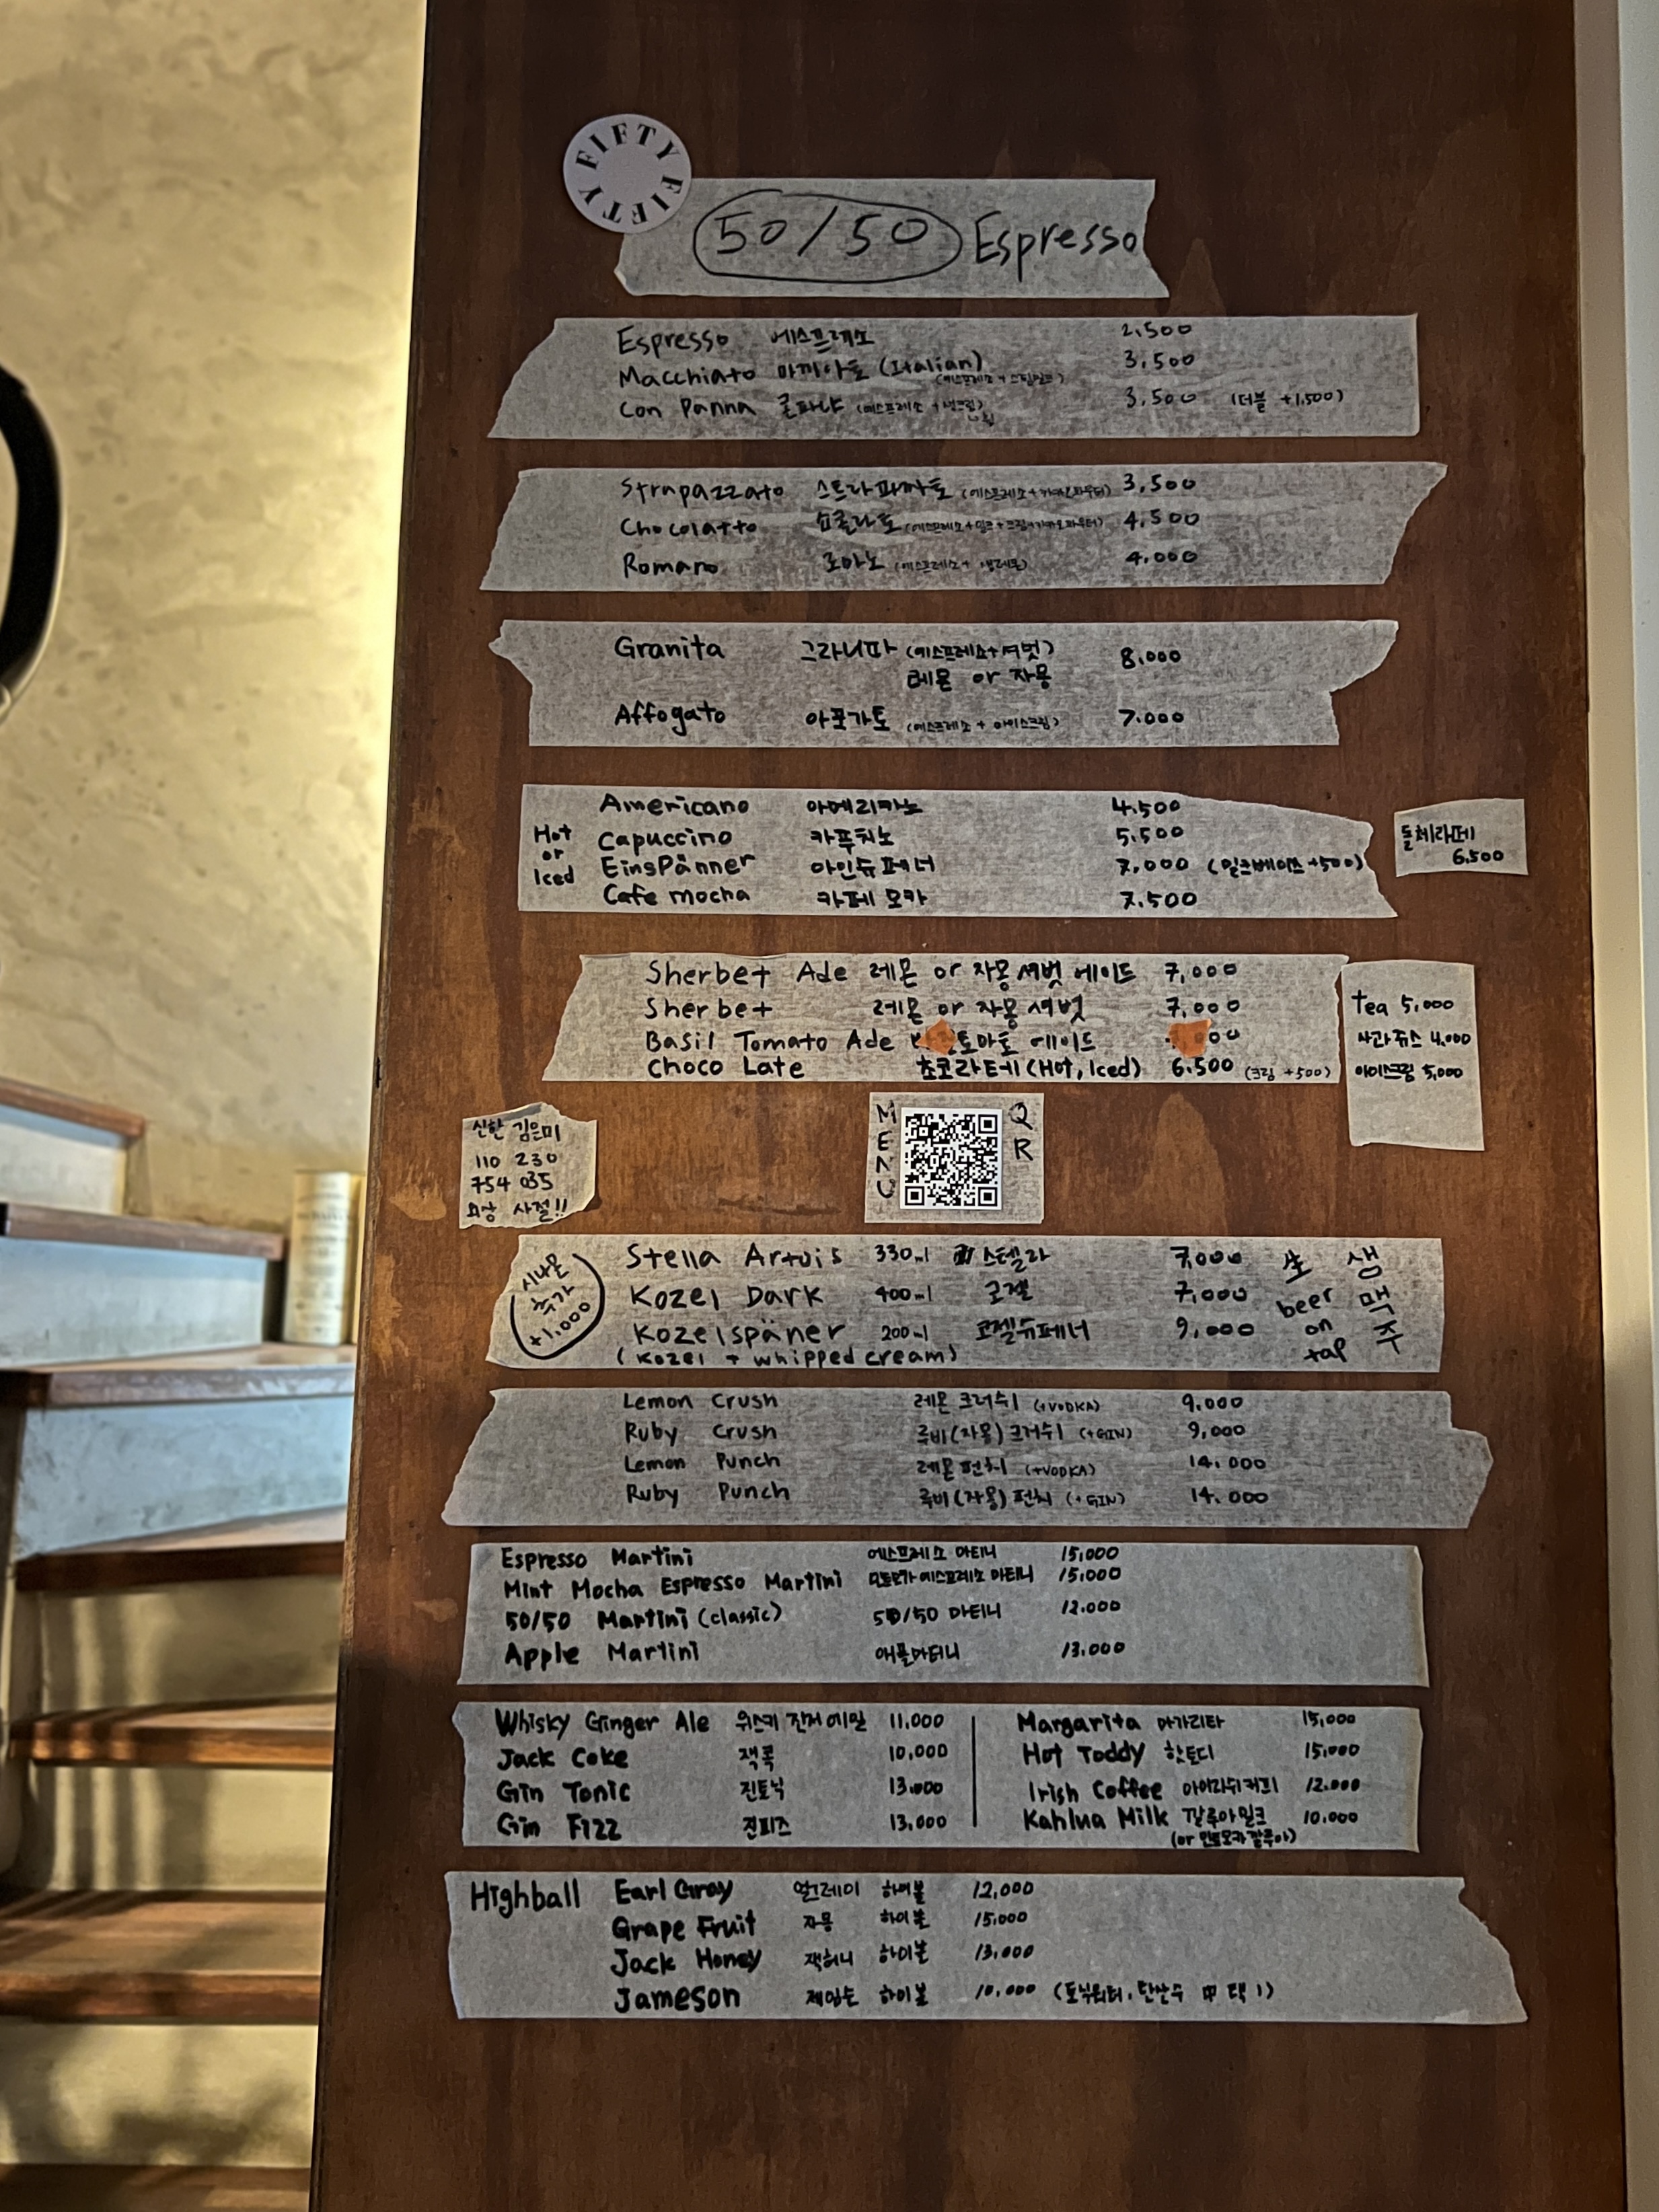 FIFTY FIFTY
50/50 Espresso
Espresso 에스프레소 2,500
Macchiato 마끼아또 (Italian) 3,500
(에스프레소 + 스팀밀크)
Con Panna 콘파냐 (에스프레소 + 생크림) 3,500 (더블 +1,500)
Strapazzato 스트라파짜토 (에스프레소+카카오파우더) 3,500
Chocolatto 쇼콜라토 (에스프레소+밀크+크림+카카오파우더) 4,500
Romano 로마노 (에스프레소+ 생레몬) 4,000
Granita 그라니따 (에스프레소+셔벗) 8,000
레몬 or 자몽
Affogato 아포가토 (에스프레소 + 아이스크림) 7,000
Hot or Iced
Americano 아메리카노 4,500
Capuccino 카푸치노 5,500
EinsPänner 아인슈페너 7,000 (밀크베이스 +500)
Cafe mocha 카페 모카 7,500
돌체라떼
6,500
Sherbet Ade 레몬 or 자몽 셔벗 에이드 7,000
Sherbet 레몬 or 자몽 셔벗 7,000
Basil Tomato Ade 토마토 에이드
Choco Late 초코라떼 (Hot, Iced) 6,500 (크림 +500)
tea 5,000
사과쥬스 4,000
아이스크림 5,000
신한 김은미
110 230
754 035
외상 사절!!
MENU QR
시나몬
추가
+1,000
Stella Artois 330ml 스텔라 7,000
Kozel Dark 400ml 코젤 7,000
Kozelspäner 200ml 코젤슈페너 9,000
(Kozel + whipped cream)
生 beer on tap
생맥주
Lemon Crush 레몬 크러쉬 (+VODKA) 9,000
Ruby Crush 루비(자몽) 크러쉬 (+GIN) 9,000
Lemon Punch 레몬 펀치 (+VODKA) 14,000
Ruby Punch 루비(자몽) 펀치 (+GIN) 14,000
Espresso Martini 에스프레소 마티니 15,000
Mint Mocha Espresso Martini 민트모카 에스프레소 마티니 15,000
50/50 Martini (classic) 50/50 마티니 12,000
Apple Martini 애플마티니 13,000
Whisky Ginger Ale 위스키 진저에일 11,000
Jack Coke 잭콕 10,000
Gin Tonic 진토닉 13,000
Gin Fizz 진피즈 13,000
Margarita 마가리타 15,000
Hot Toddy 핫토디 15,000
Irish Coffee 아이리쉬커피 12,000
Kahlua Milk 깔루아밀크 10,000
(or 민트모카 깔루아)
Highball Earl Gray 얼그레이 하이볼 12,000
Grape Fruit 자몽 하이볼 15,000
Jack Honey 잭허니 하이볼 13,000
Jameson 제임슨 하이볼 10,000 (토닉워터, 탄산수 中 택 1)